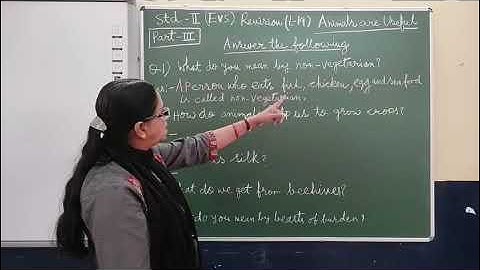 Std-II (EVS) Revision (L-19) Animals are Useful
Part-III
Answer the following
Q-1) What do you mean by non-vegetarian?
A person who eats fish, chicken, egg and sea food
is called non-vegetarian.
How do animals us to grow crops?
silk?
do we get from beehives?
do you mean by beasts of burden?